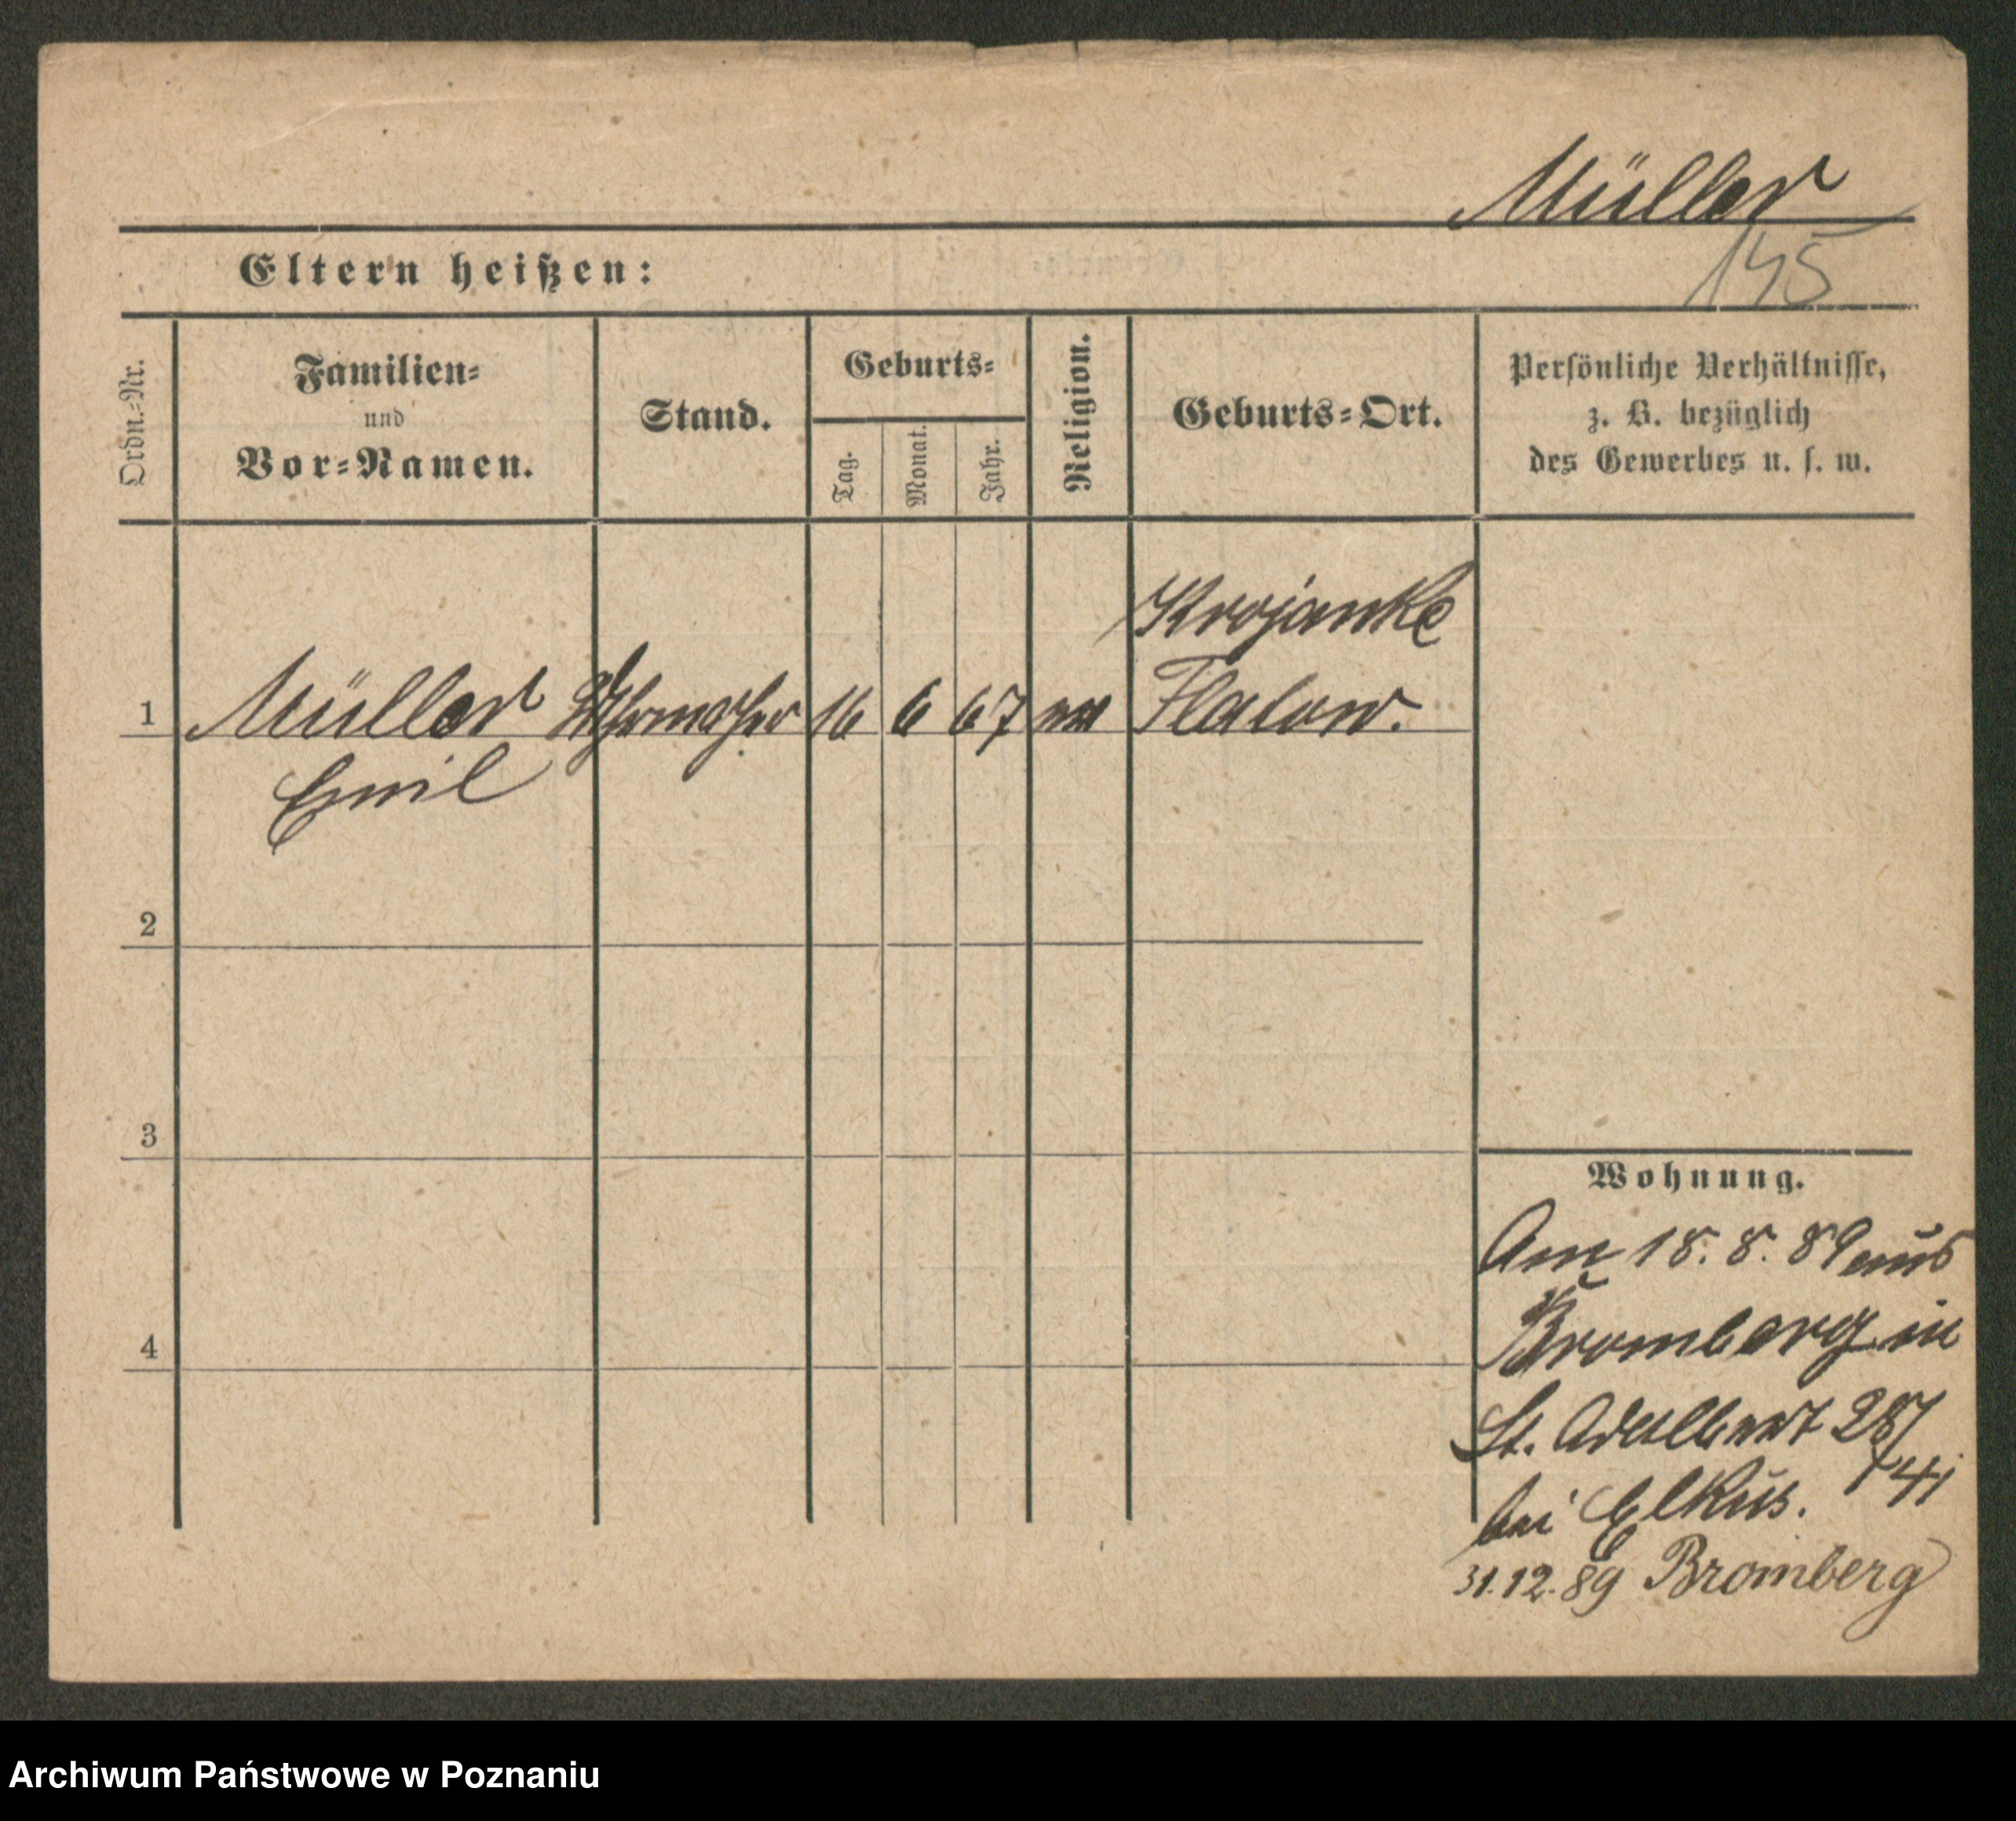 Müller
145
Eltern heißen:
Ordn.=Nr.
Familien=
und
Vor=Namen.
Stand.
Geburts=
Tag.
Monat.
Jahr.
Religion.
Geburts=Ort.
Persönliche Verhältnisse,
z. B. bezüglich
des Gewerbes u. s. w.
Krojanke
1 Müller Uhrmacher 16 6 67 Flatow.
Emil
2
3
4
Wohnung.
Am 18. 8. 89 aus
Bromberg in
St. Adalbert 28/
/41
bei Elkus.
31.12.89 Bromberg
Archiwum Państwowe w Poznaniu